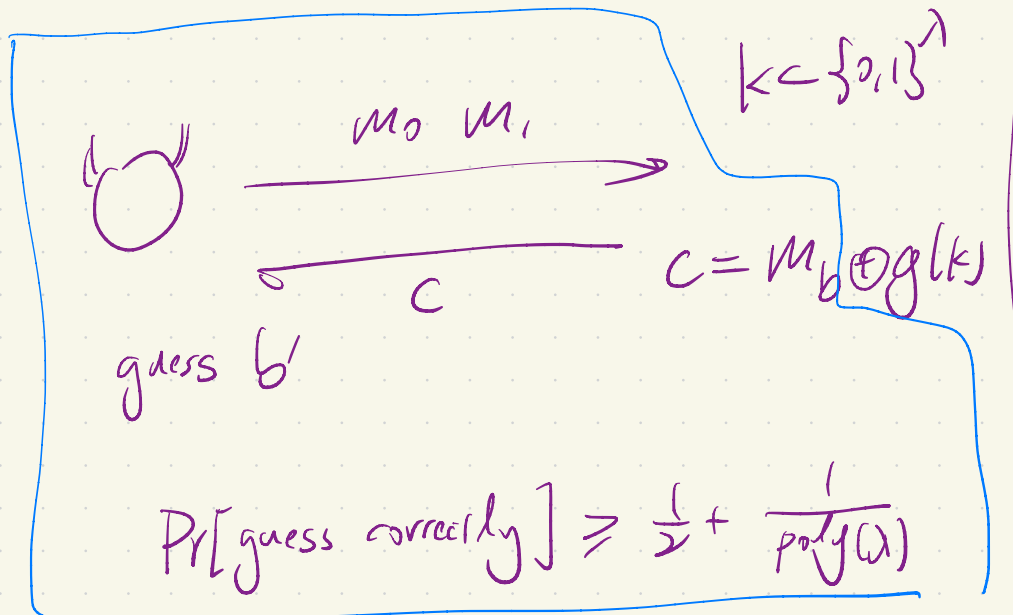 k ← {0,1}^λ
m₀ m₁
c = m_b ⊕ g(k)
c
guess b'
Pr[guess correctly] ≥ 1/2 + 1/poly(λ)